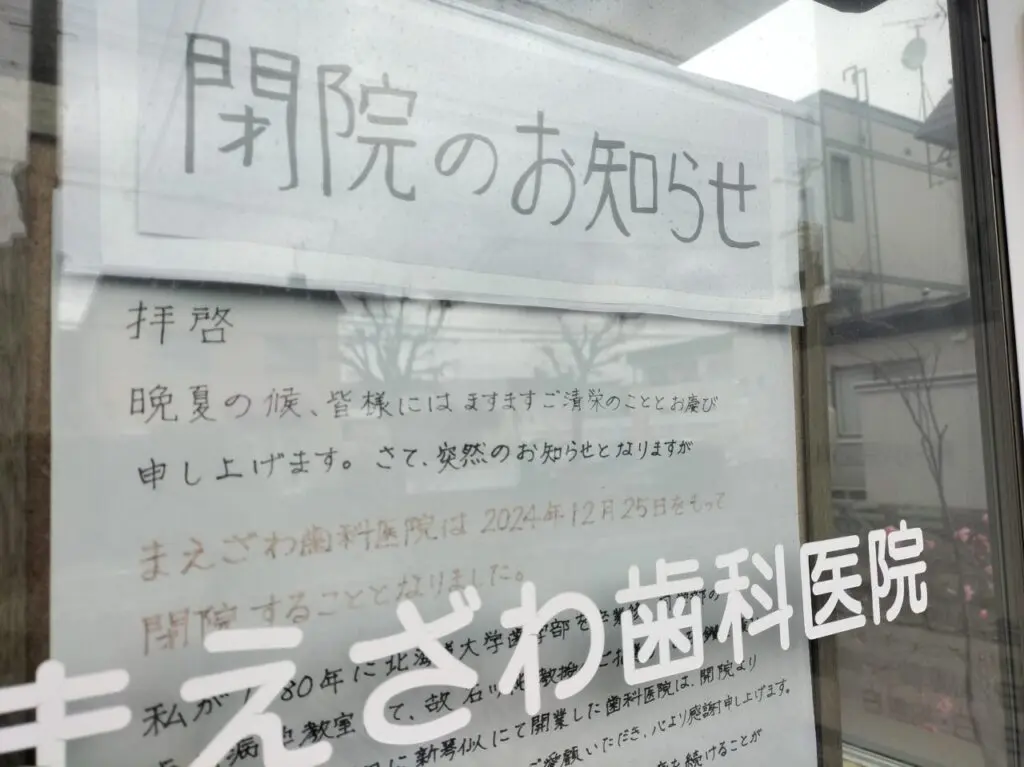 閉院のお知らせ
拝啓
晩夏の候、皆様にはますますご清栄のこととお慶び
申し上げます。さて、突然のお知らせとなりますが
まえざわ歯科医院は2024年12月25日をもって
閉院することとなりました。
まえざわ歯科医院
私が1980年に北海道大学歯学部を卒業後、
教室 て、故石 教授
新琴似にて開業した歯科医院は、開院より
ご愛顧いただき、心より感謝申し上げます。
を続けることが